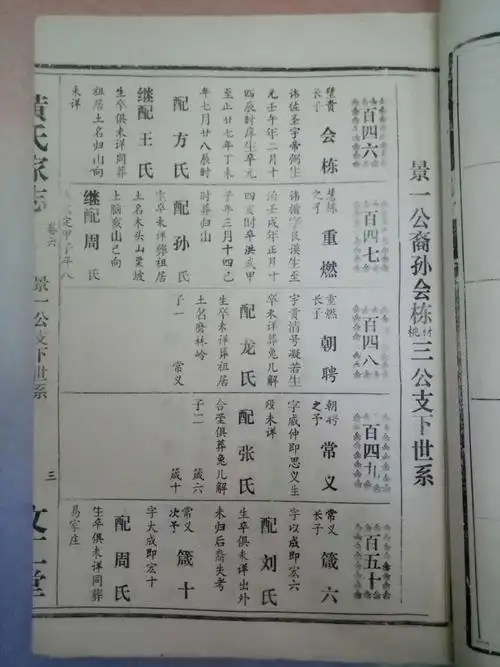 景一公裔孙会栋材桃三公支下世系
百四六
璧贵长子
会栋
讳佐圣字帝弼生
元壬午年二月十
四辰时庠生卒元
至正廿七年丁未
年七月廿八辰时
配方氏
继配王氏
生卒俱未详同葬
祖居土名归山向
未详
百四七
之子
重燃
治壬戌年正月十
四亥时卒洪武甲
子年三月十四巳
时葬归山
配孙氏
生卒未详葬祖居
土名木头山栗坡
上脑亥山己向
继配周氏
百四八
重燃长子
朝聘
字贡清号凝若生
卒未详葬兔儿解
配龙氏
生卒未详葬祖居
土名磨林岭
子一
常义
百四九
朝聘之子
常义
字威仲即思义生
殁未详
配张氏
合茔俱葬兔儿解
子二
箴六
箴十
百五十
常义长子
箴六
字以成即宏六
配刘氏
生卒俱未详出外
未归后裔失考
常义次子
箴十
字大成即宏十
配周氏
生卒俱未详同葬
易家庄
黄氏家志
卷六
景一公支下世系
三